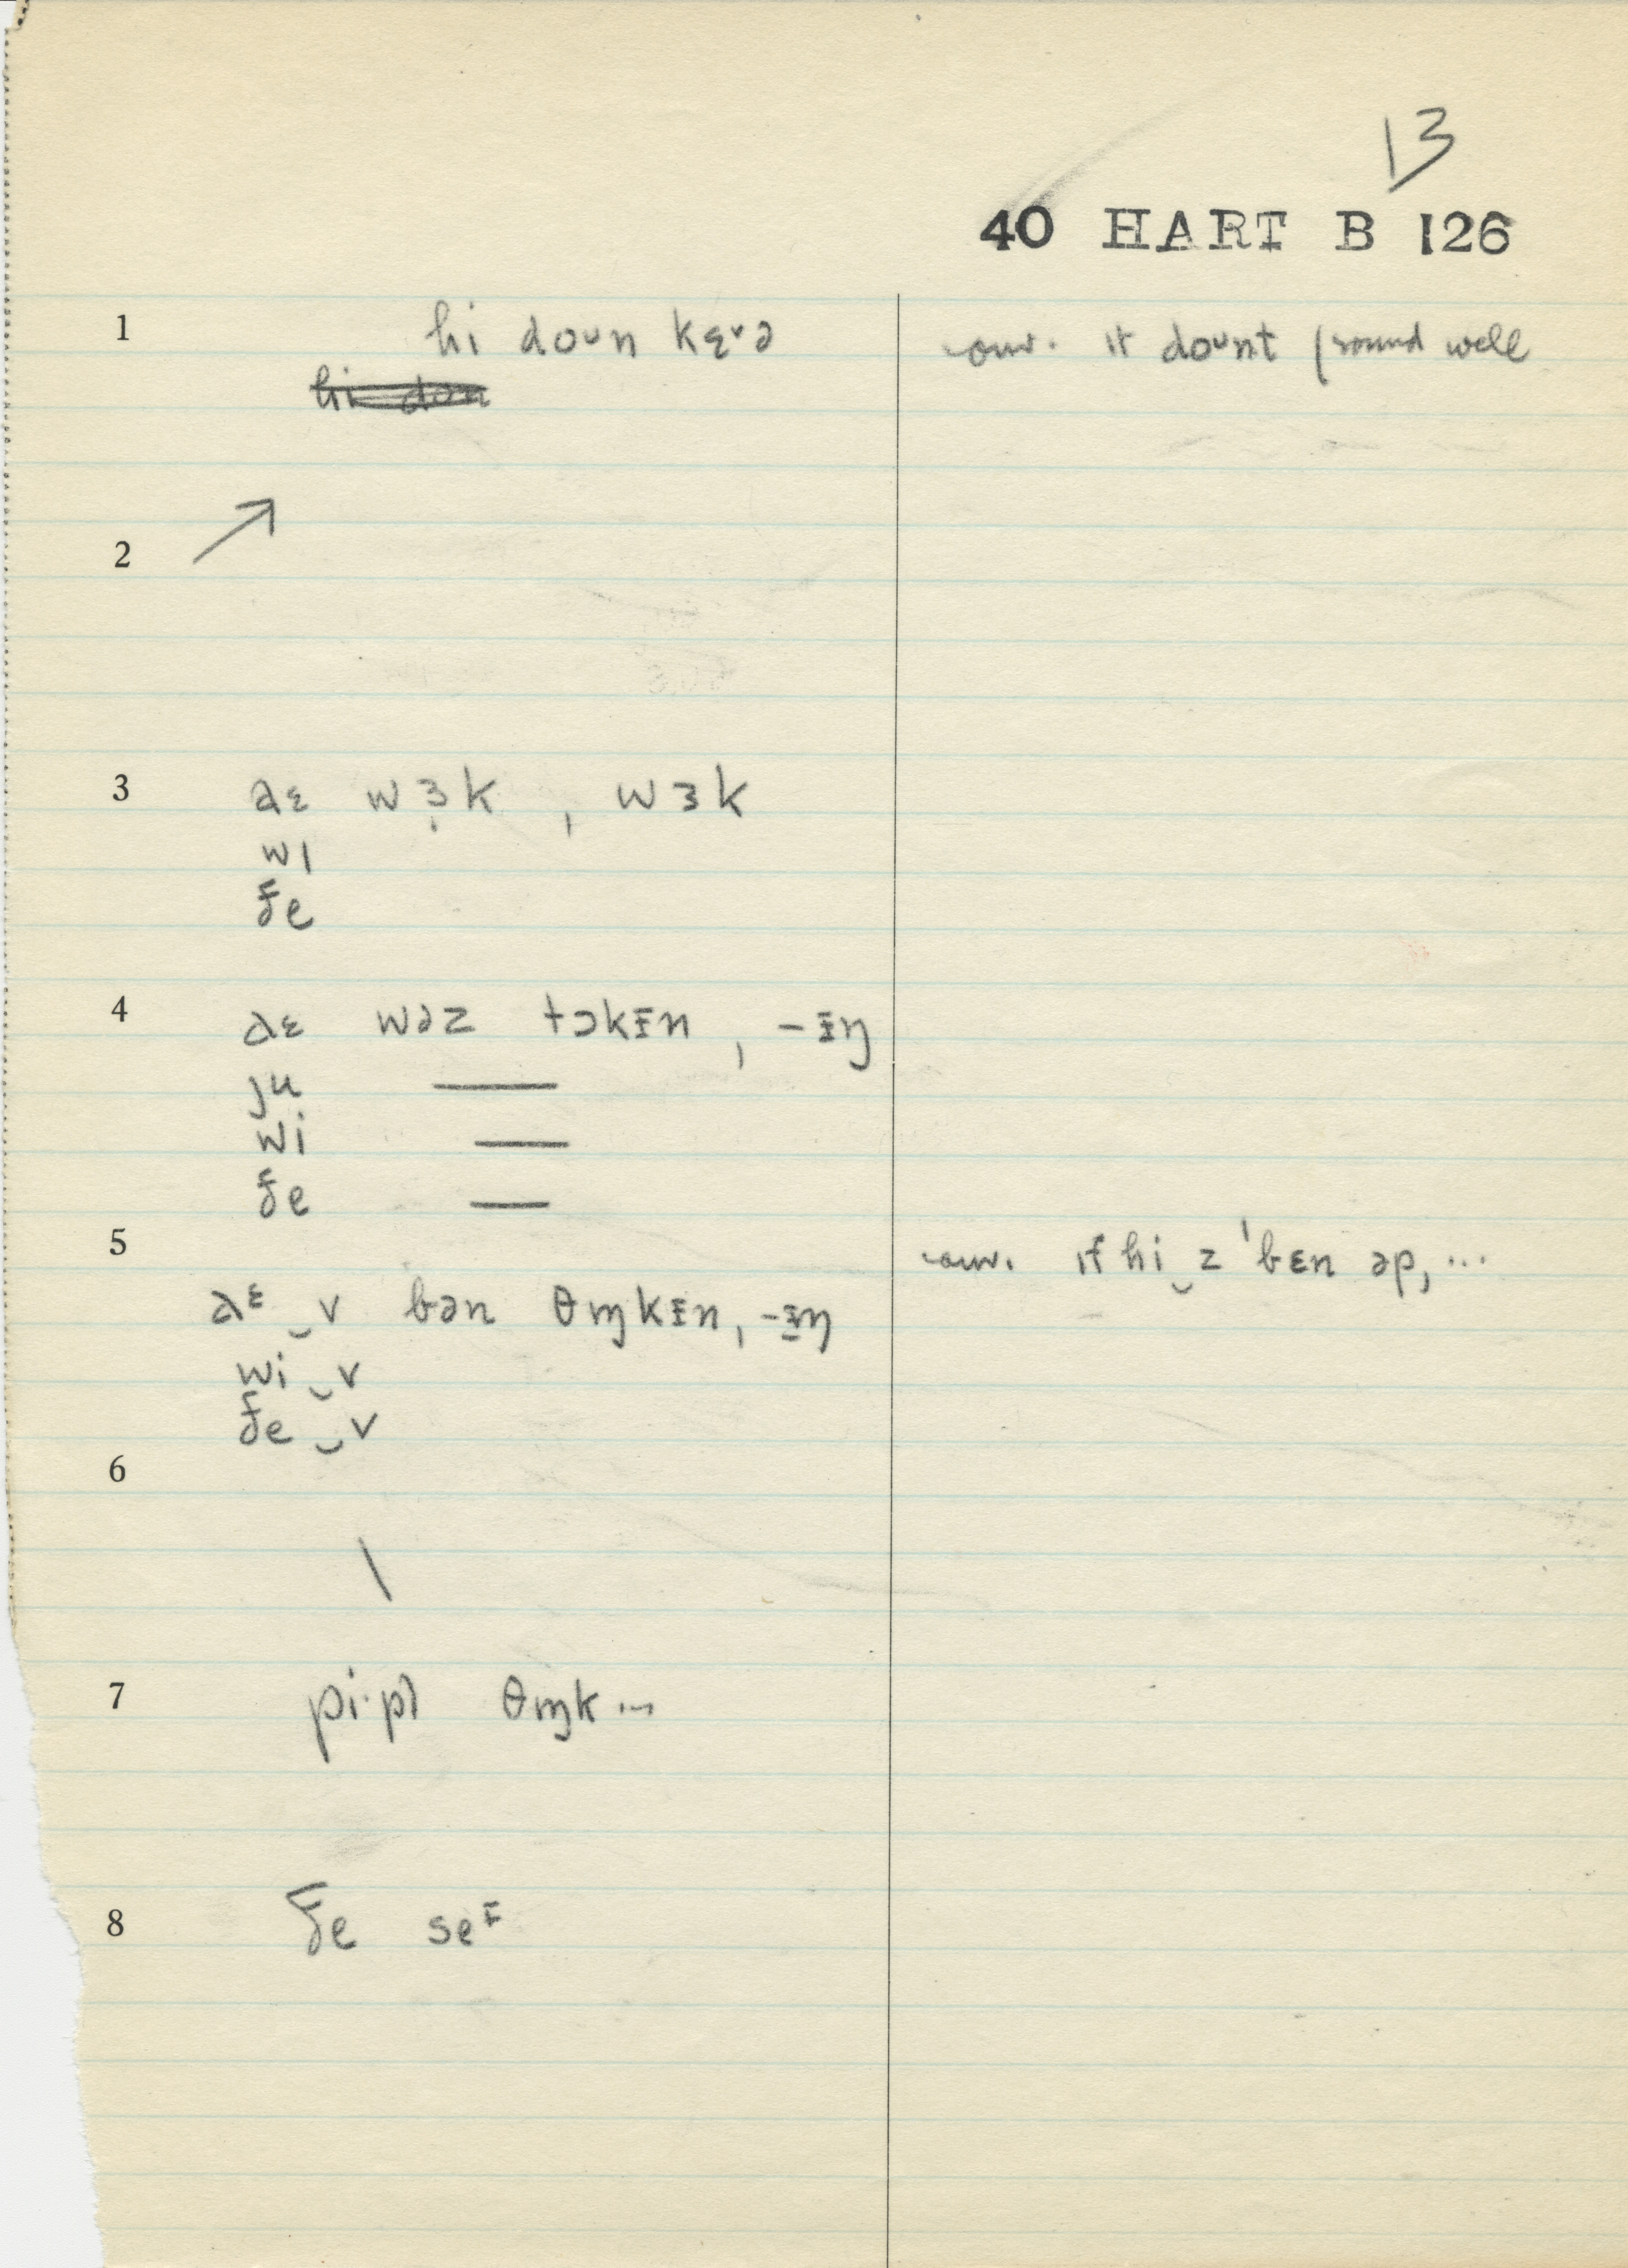 13
40 HART B 126
1 hi doun kɛ̜˅ə conv. ɪt dount (sound well
hi don
2 ↗
3 aɛ wɜ̣k , wɜk
wɪ
ðe
4 aɛ wəz tɔkɪn , -ɪŋ
ju —
wi —
ðe —
5 conv. ɪf hi‿z ˈbɛn əp, ...
aᵋ‿v bən θɪŋkɪn, -ɪŋ
wi‿v
ðe‿v
6 \
7 pi·pl θɪŋk ...
8 ðe seᶦ